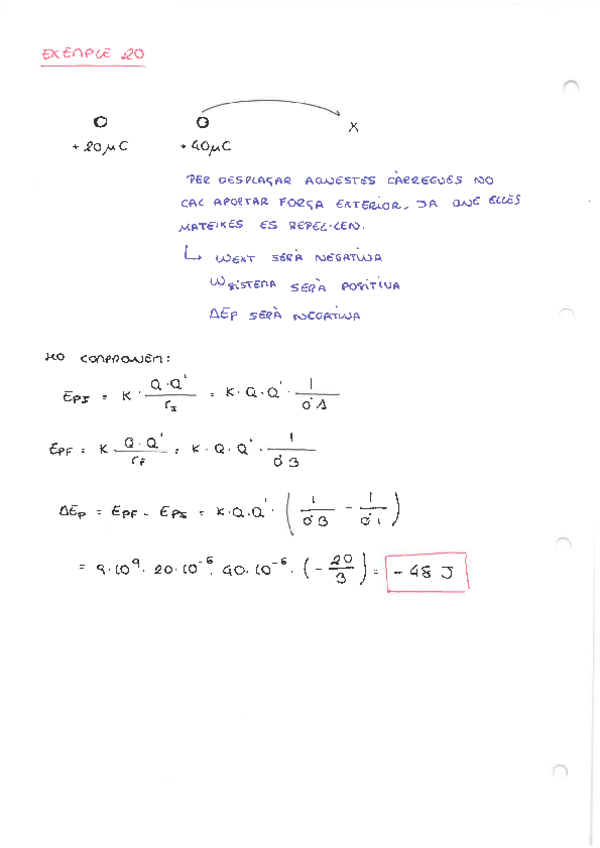 EXEMPLE 20
+ 20μC + 40μC X
PER DESPLAÇAR AQUESTES CÀRREGUES NO
CAL APORTAR FORÇA EXTERIOR, JA QUE ELLES
MATEIXES ES REPEL·LEN.
↳ WEXT SERÀ NEGATIVA
WSISTEMA SERÀ POSITIVA
ΔEp SERÀ NEGATIVA
HO COMPROVEM:
EPI = K · Q·Q' / rI = K·Q·Q' · 1 / 0'1
EPF = K · Q·Q' / rF = K·Q·Q' · 1 / 0'3
ΔEp = EPF - EPI = K·Q·Q' · ( 1 / 0'3 - 1 / 0'1 )
= 9·10⁹ · 20·10⁻⁶ · 40·10⁻⁶ · ( - 20 / 3 ) = - 48 J